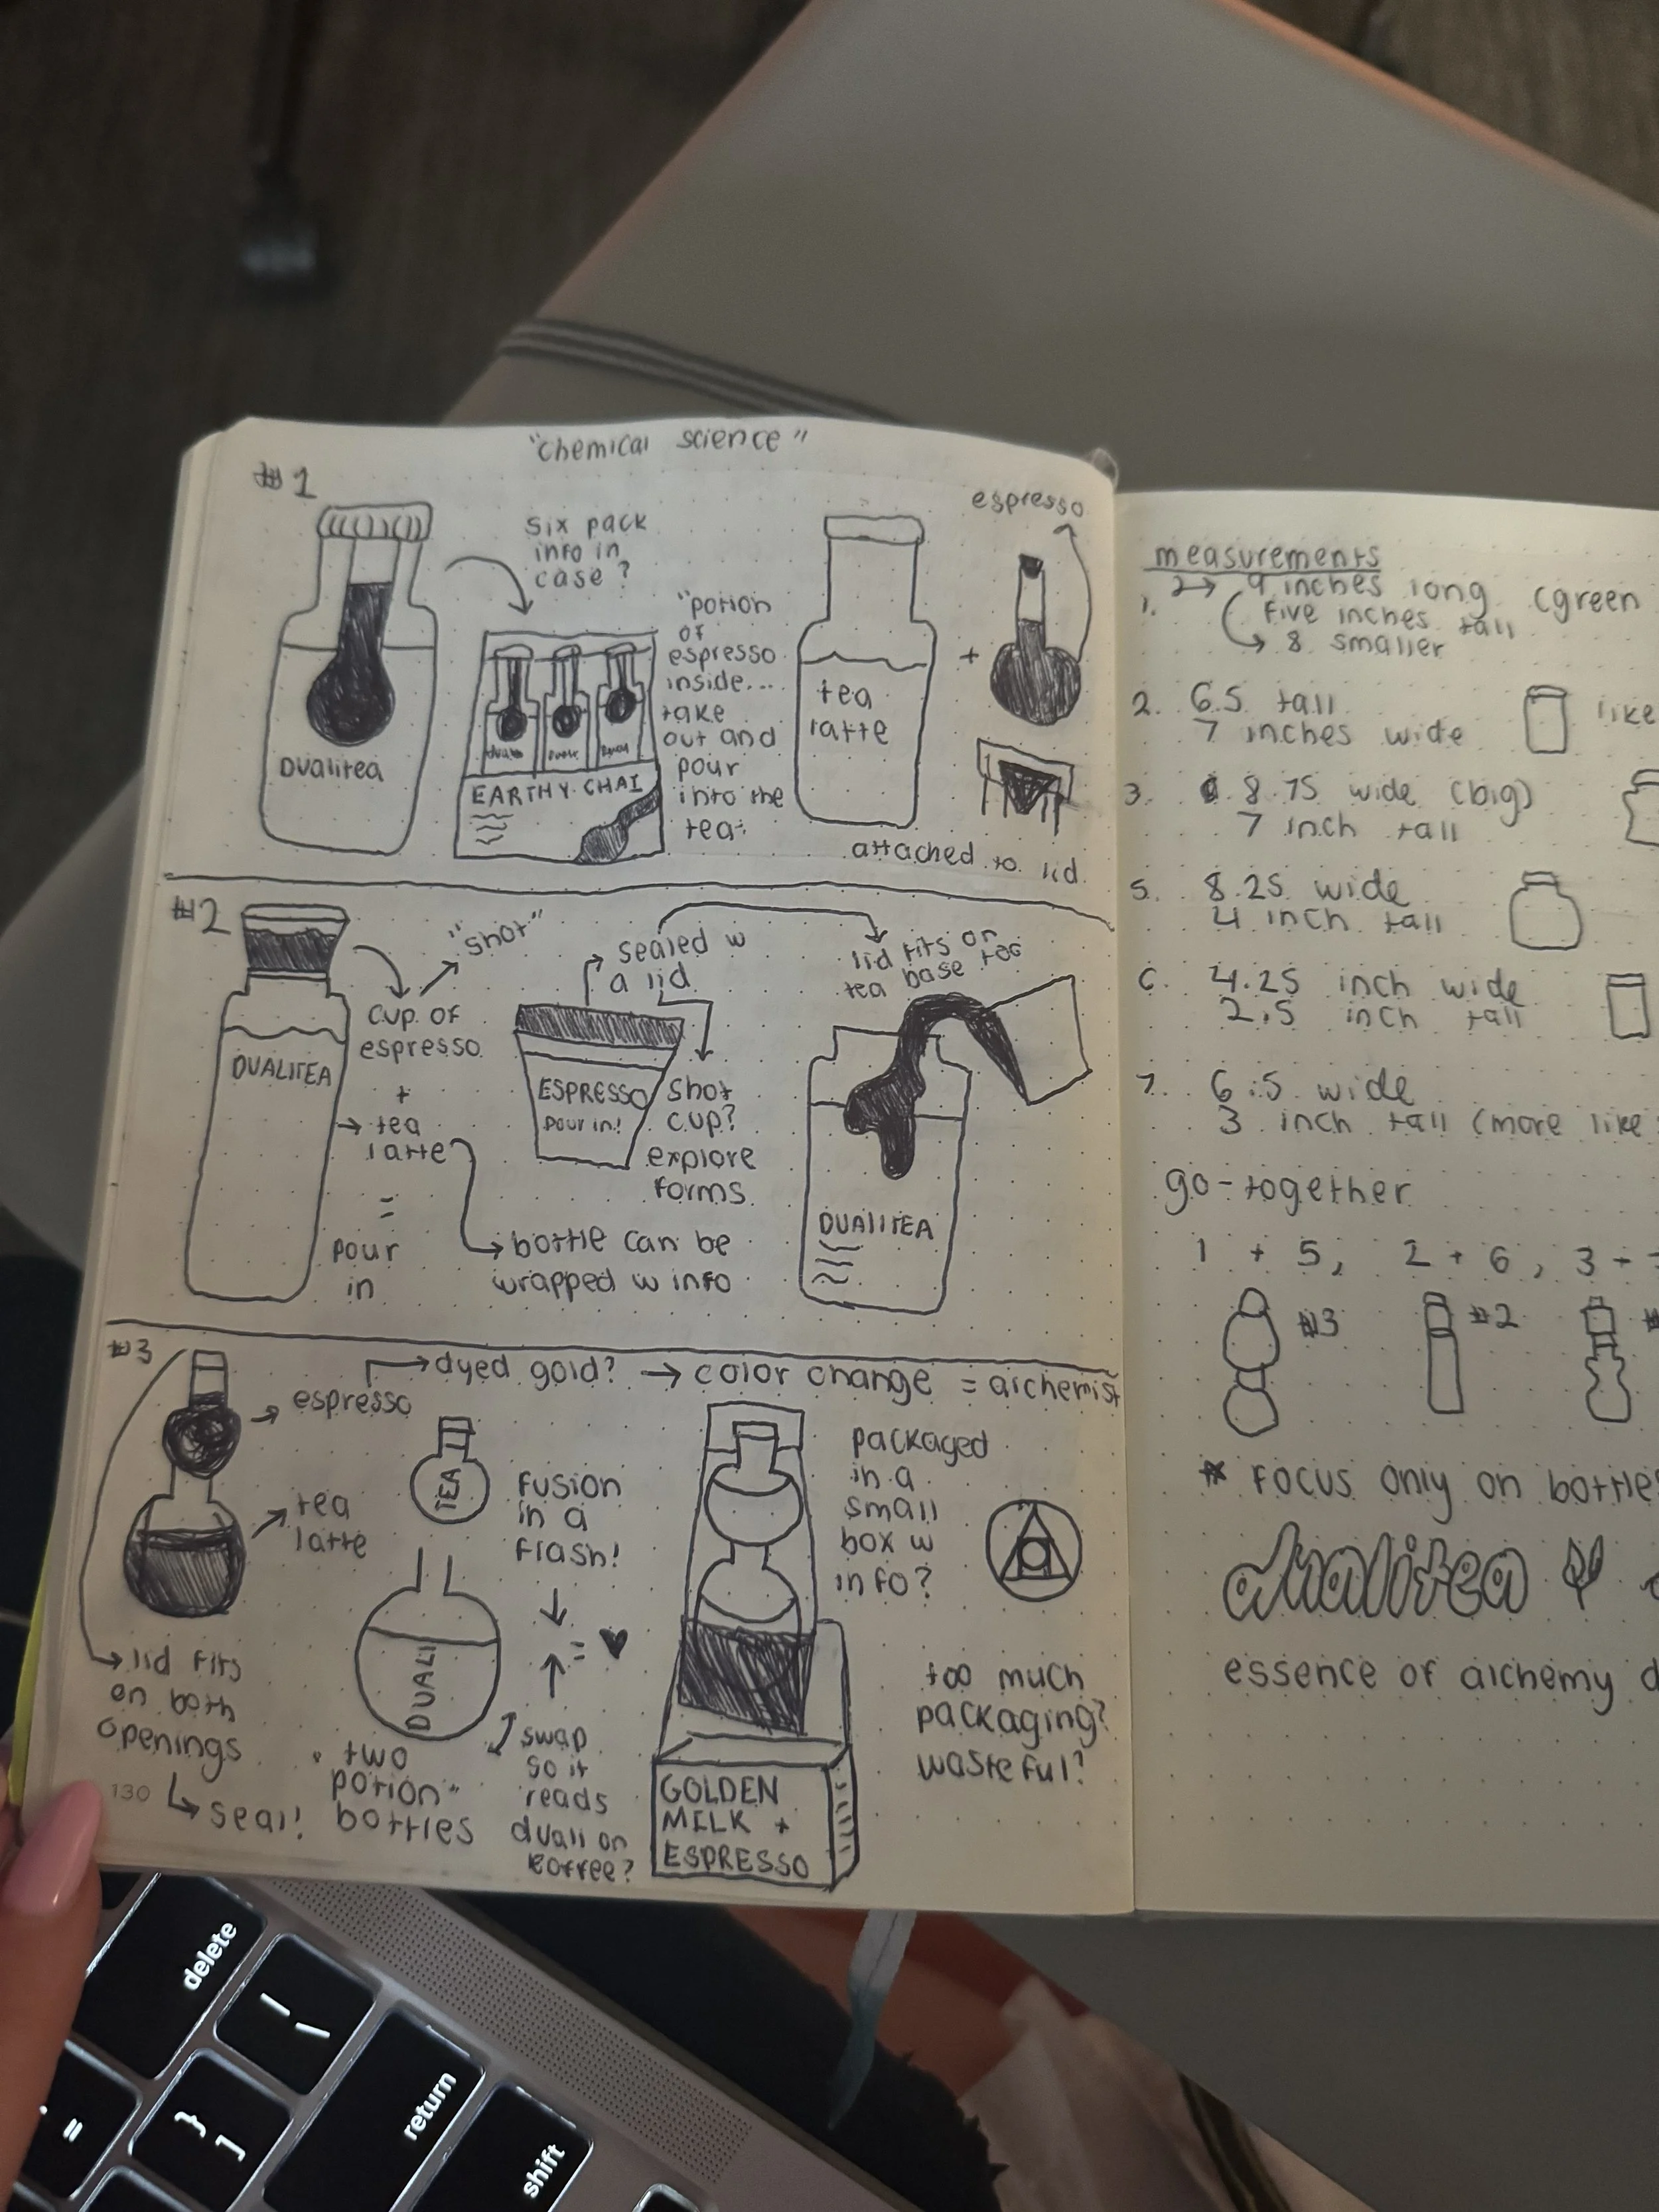 "chemical science"
#1
six pack
info in
case?
"potion
of
espresso
inside...
take
out and
pour
into the
tea"
Dualitea
EARTHY CHAI
tea
latte
+
espresso
attached to lid
#2
"shot"
cup of
espresso
+
tea
latte
=
pour
in
DUALITEA
sealed w
a lid
ESPRESSO
pour in!
shot
cup?
explore
forms
bottle can be
wrapped w info
lid fits on
tea base too
DUALITEA
#3
dyed gold? → color change = alchemist
espresso
tea
latte
lid fits
on both
openings
seal!
TEA
DUALI
"two
potion"
bottles
fusion
in a
flash!
= ♥
swap
so it
reads
duali on
koffee?
packaged
in a
small
box w
info?
GOLDEN
MILK +
ESPRESSO
too much
packaging?
wasteful?
130
measurements
1. 2→ 9 inches long (green
five inches tall
8 smaller
2. 6.5 tall
7 inches wide
like
3. 8.75 wide (big)
7 inch tall
5. 8.25 wide
4 inch tall
6. 4.25 inch wide
2.5 inch tall
7. 6.5 wide
3 inch tall (more like
go-together
1 + 5, 2 + 6, 3 +
#3
#2
* FOCUS only on bottle
dualitea
essence of alchemy
delete
| \
return
} ]
shift
=